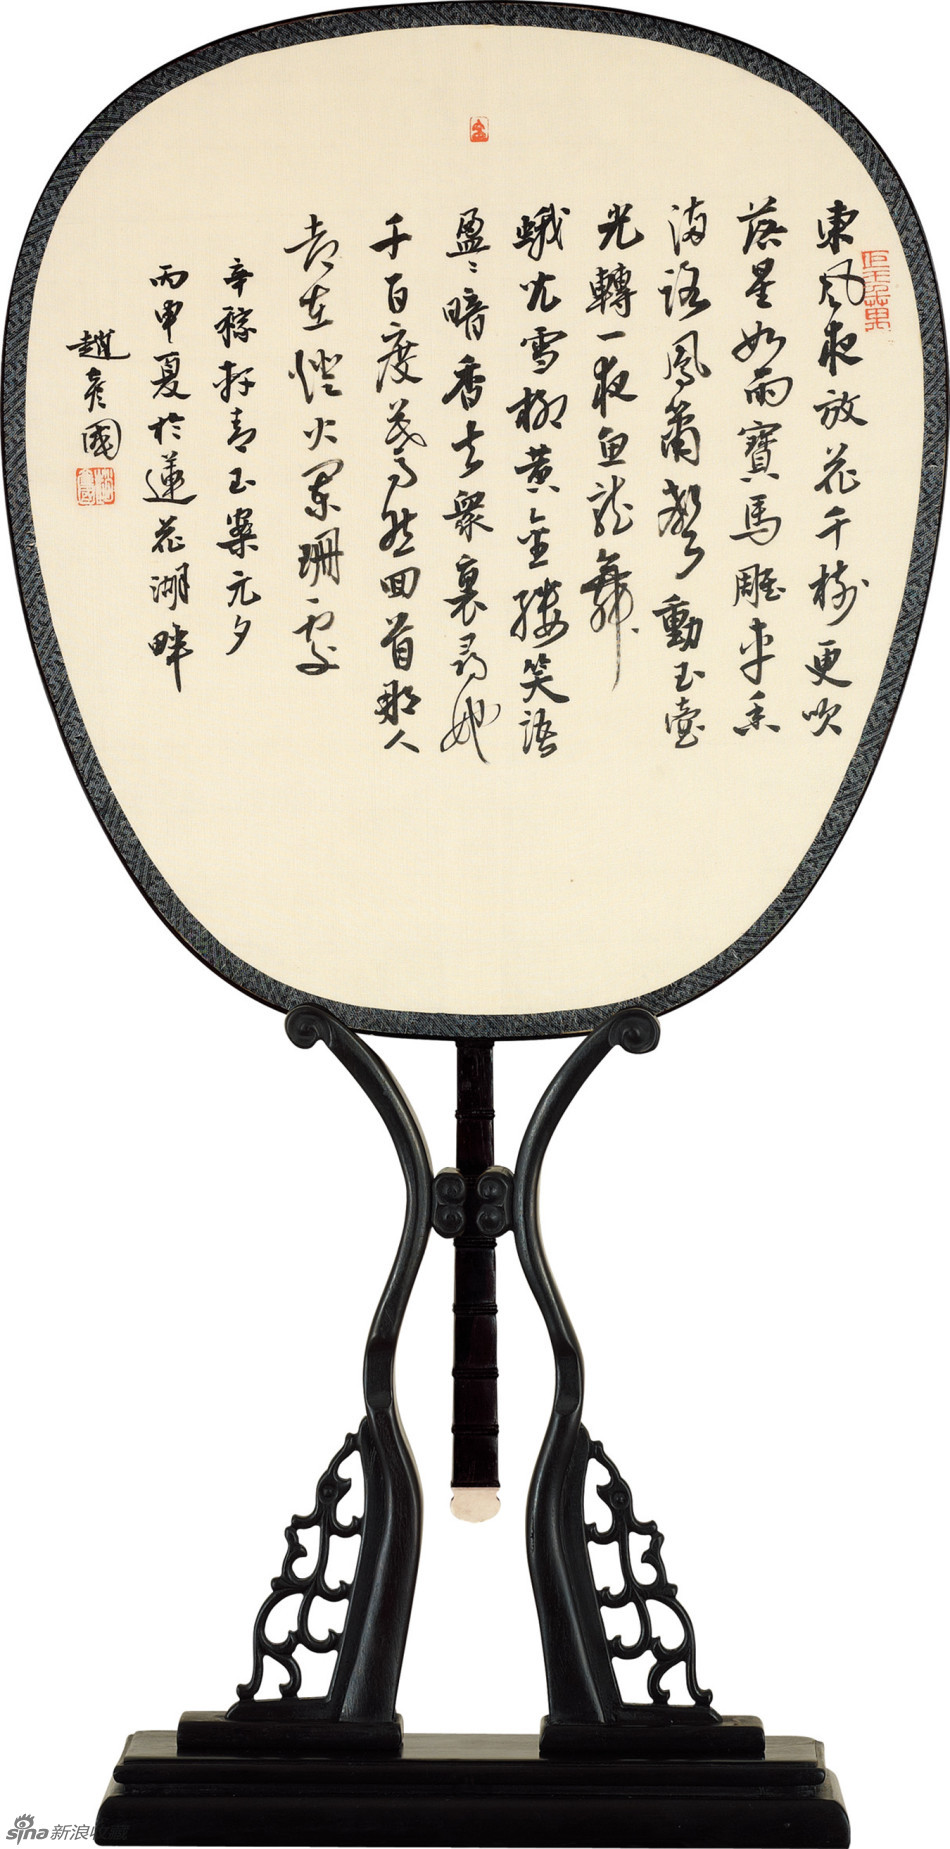 東風夜放花千樹更吹
落星如雨寶馬雕車香
滿路鳳簫聲動玉壺
光轉一夜魚龍舞
蛾兒雪柳黃金縷笑語
盈〻暗香去衆裏尋他
千百度驀然回首那人
却在燈火闌珊處
辛稼軒青玉案元夕
丙申夏於蓮花湖畔
趙彥國
sina 新浪收藏